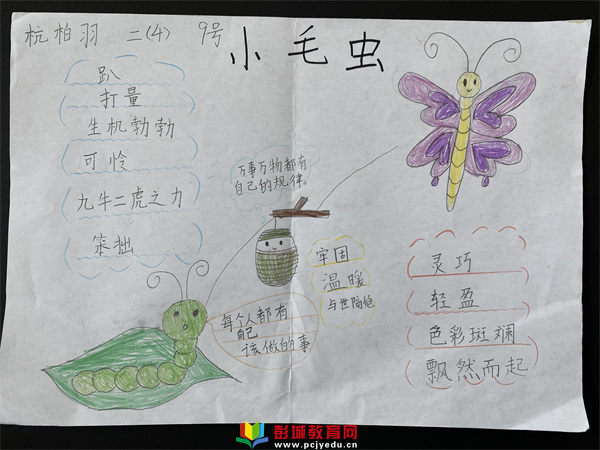 杭柏羽 二(4) 9号
小毛虫
趴
打量
生机勃勃
可怜
九牛二虎之力
笨拙
万事万物都有
自己的规律。
牢固
温暖
与世隔绝
每个人都有
自己
该做的事
灵巧
轻盈
色彩斑斓
飘然而起
彭城教育网
www.pcjyedu.cn